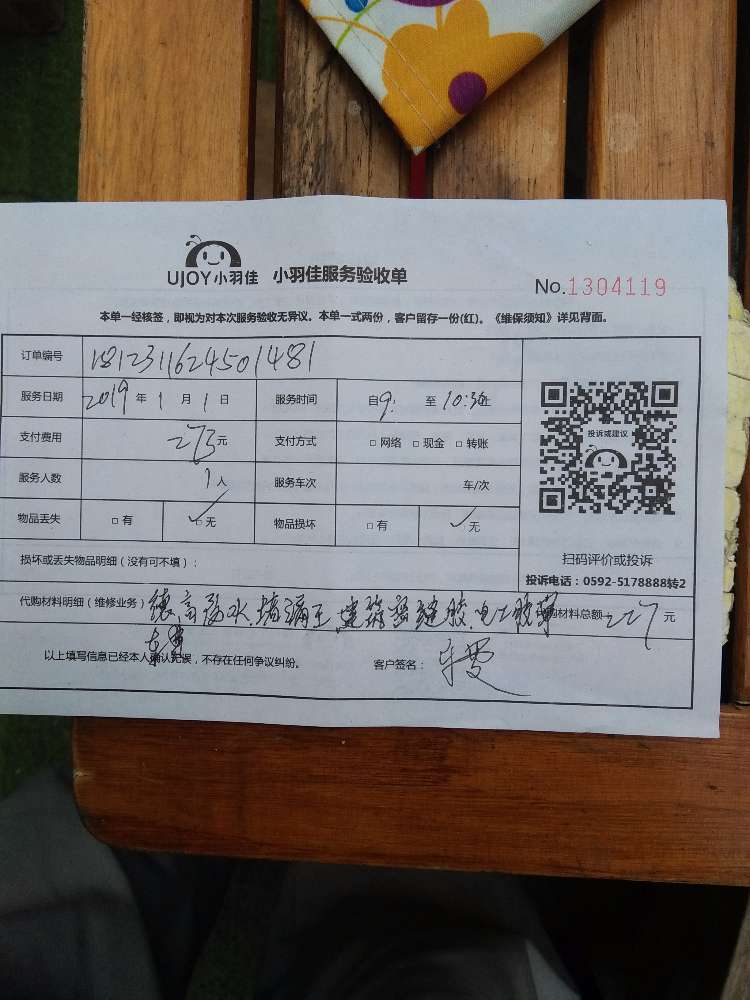 UJOY小羽佳 小羽佳服务验收单
No.1304119
本单一经核签，即视为对本次服务验收无异议。本单一式两份，客户留存一份(红)。《维保须知》详见背面。
订单编号 1812311624501481
服务日期 2019 年 1 月 1 日 服务时间 自 9: 至 10:30 止
支付费用 273 元 支付方式 □ 网络 □ 现金 □ 转账
服务人数 1 人 服务车次 车/次
物品丢失 □ 有 ✓ 无 物品损坏 □ 有 ✓ 无
投诉或建议
扫码评价或投诉
投诉电话：0592-5178888转2
损坏或丢失物品明细（没有可不填）：
代购材料明细（维修业务）: 防水.堵漏王.建筑密缝胶.电工胶 代购材料总额 227 元
以上填写信息已经本人确认无误，不存在任何争议纠纷。 客户签名：